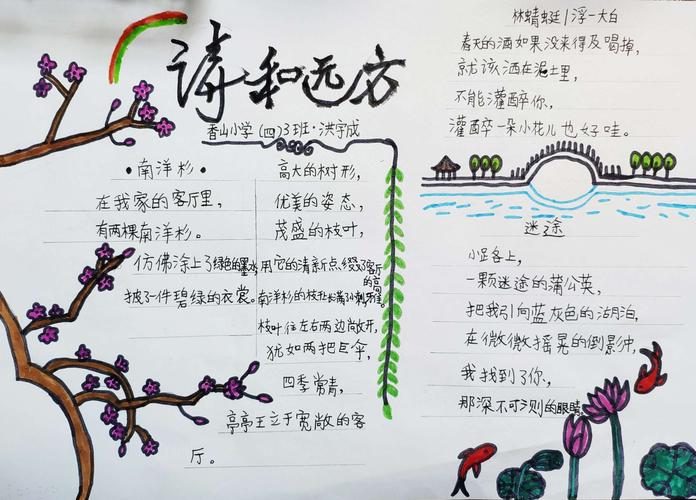 诗和远方
香山小学(四)3班·洪宇成
•南洋杉•
在我家的客厅里,
有两棵南洋杉。
仿佛涂上了绿色的墨水,
披了一件碧绿的衣裳。
高大的树形,
优美的姿态,
茂盛的枝叶,
用它的清新点缀客厅的高
南洋杉的枝 满小刺
枝叶往左右两边散开,
犹如两把巨伞,
四季常青,
亭亭玉立于宽敞的客
厅。
林蜻蜓/浮一大白
春天的酒如果没来得及喝掉,
就该洒在泥土里,
不能灌醉你,
灌醉一朵小花儿也好哇。
迷途
小路上,
一颗迷途的蒲公英,
把我引向蓝灰色的湖泊,
在微微摇晃的倒影中,
我找到了你,
那深不可测的眼睛